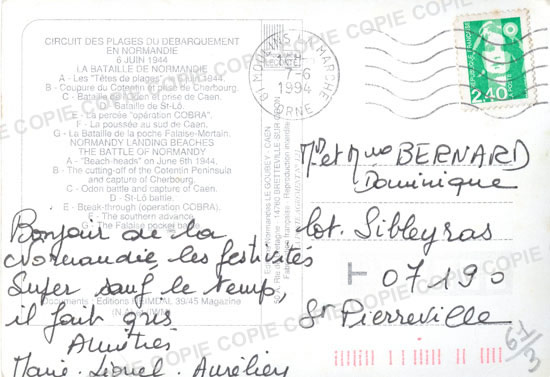 CIRCUIT DES PLAGES DU DÉBARQUEMENT
EN NORMANDIE
6 JUIN 1944
LA BATAILLE DE NORMANDIE
A - Les "Têtes de plages" 1944.
B - Coupure du Cotentin et prise de Cherbourg.
C - Bataille de l'Odon et prise de Caen.
D - Bataille de St-Lô.
E - La percée "opération COBRA".
F - La poussée au sud de Caen.
G - La Bataille de la poche Falaise-Mortain.
NORMANDY LANDING BEACHES
THE BATTLE OF NORMANDY
A - "Beach-heads" on June 6th 1944.
B - The cutting-off of the Cotentin Peninsula
and capture of Cherbourg.
C - Odon battle and capture of Caen.
D - St-Lô battle.
E - Break-through (operation COBRA).
F - The southern advance.
G - The Falaise pocket
Documents : Editions HEIMDAL, 39/45 Magazine
Bonjour de la
Normandie les festivités
Super sauf le temps,
il fait gris
Amitiés
Marie. Lionel. Aurélien
61 MOULINS LA MARCHE
7-6
1994
ORNE
2,40
Mr et Mme BERNARD
Dominique
lot. Sibleyras
T 07190
St Pierreville
61/3
COPIE COPIE COPIE COPIE